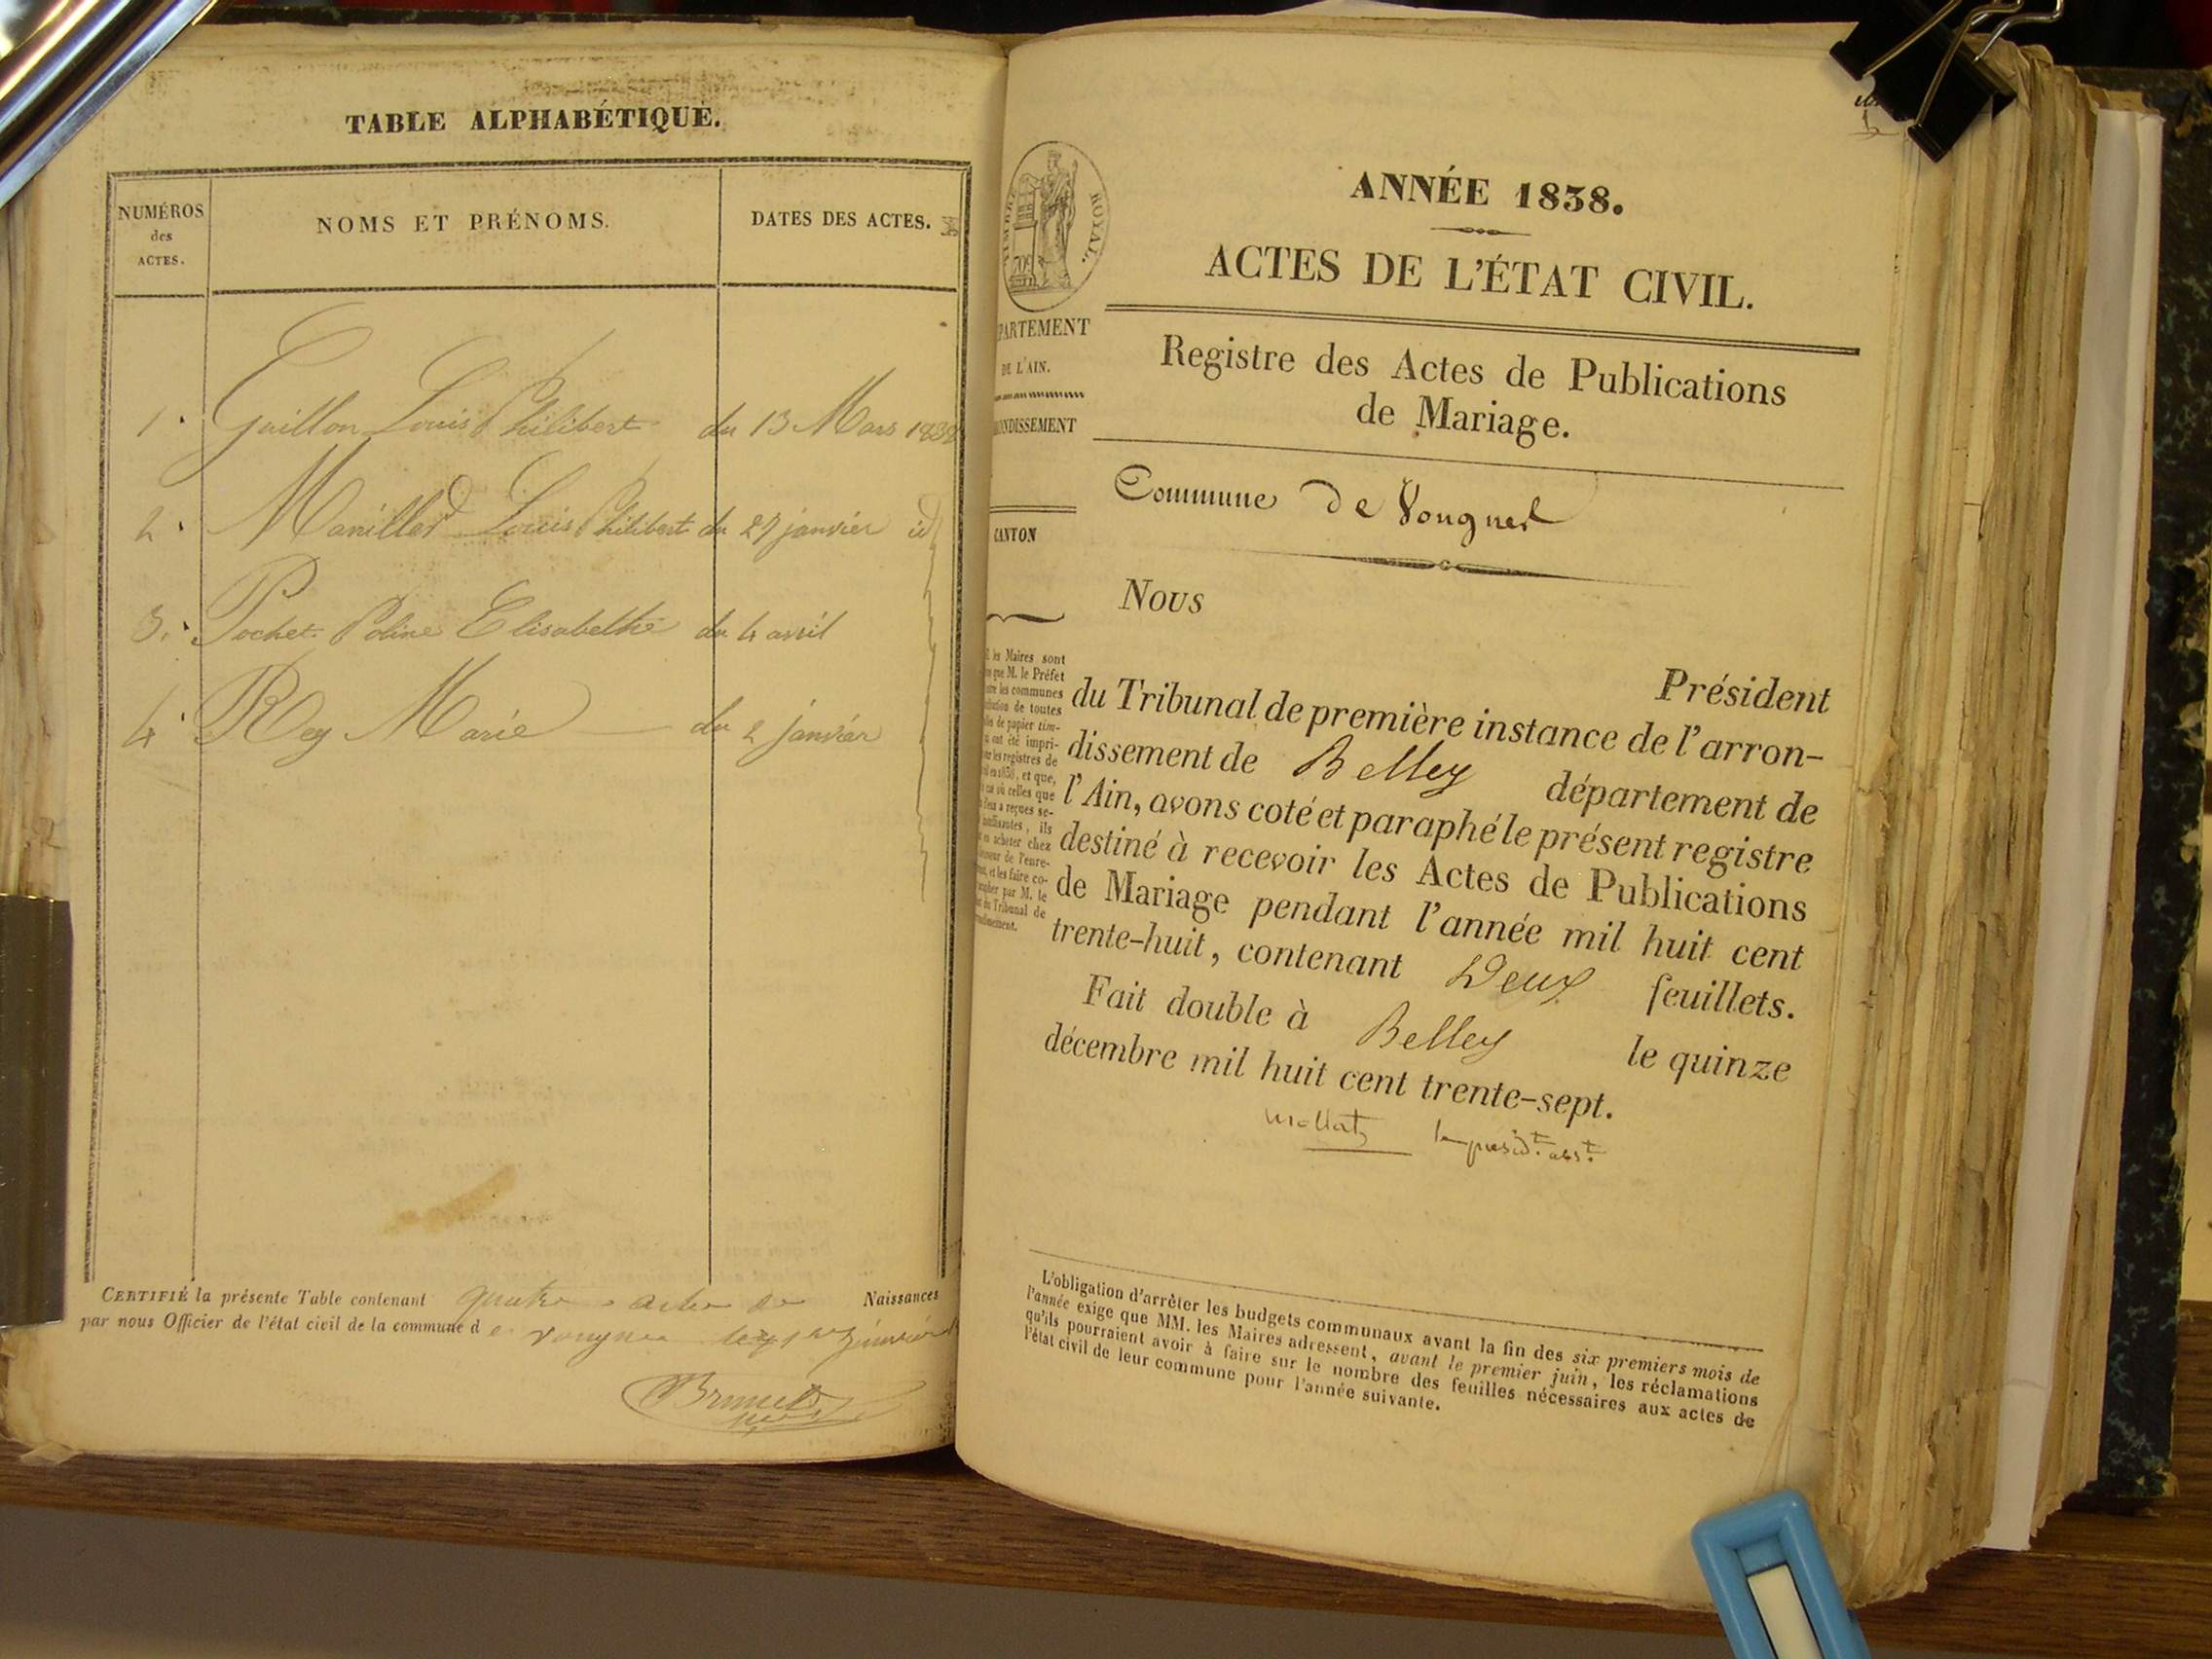 TABLE ALPHABÉTIQUE.
NUMÉROS
des
ACTES.
NOMS ET PRÉNOMS.
DATES DES ACTES.
1. Guillon Louis Philibert du 13 Mars 1838
2. Manillet Louis Philibert du 27 janvier id
3. Pochet Poline Elisabethe du 4 avril
4. Rey Marie du 2 janvier
CERTIFIÉ la présente Table contenant quatre actes de Naissances
par nous Officier de l'état civil de la commune de vougnes
Brunet
ROYAL.
ANNÉE 1838.
ACTES DE L'ÉTAT CIVIL.
PARTEMENT
DE L'AIN.
ONDISSEMENT
CANTON
Registre des Actes de Publications
de Mariage.
Commune de Vougnes
Nous
Président
du Tribunal de première instance de l'arron-
dissement de Belley département de
l'Ain, avons coté et paraphé le présent registre
destiné à recevoir les Actes de Publications
de Mariage pendant l'année mil huit cent
trente-huit, contenant Deux feuillets.
Fait double à Belley le quinze
décembre mil huit cent trente-sept.
les Maires sont
que M. le Préfet
les communes
de toutes
de papier tim-
ont été impri-
les registres de
en 1838, et que,
où celles que
reçues se-
, ils
acheter chez
de l'enre-
et les faire co-
par M. le
du Tribunal de
L'obligation d'arrêter les budgets communaux avant la fin des six premiers mois de
l'année exige que MM. les Maires adressent, avant le premier juin, les réclamations
qu'ils pourraient avoir à faire sur le nombre des feuilles nécessaires aux actes de
l'état civil de leur commune pour l'année suivante.